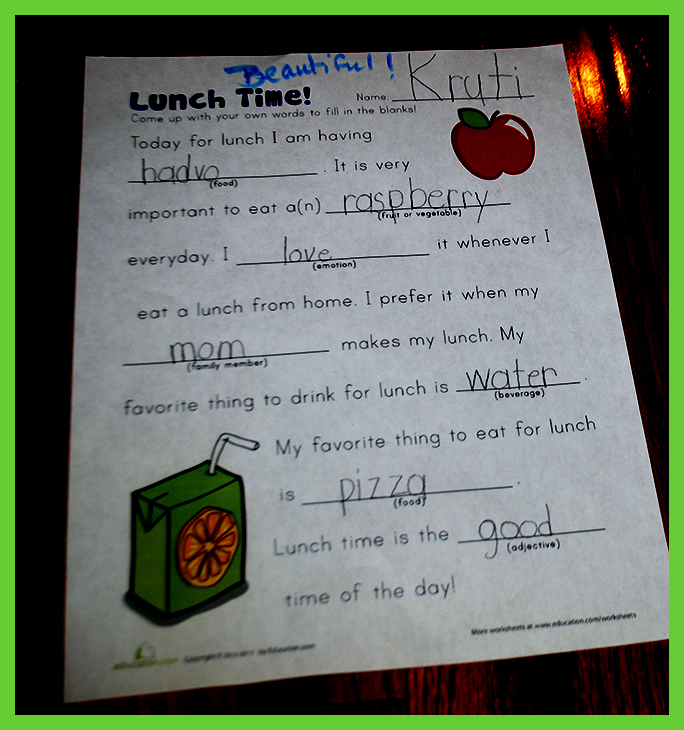 Beautiful!
Lunch Time! Name: Kruti
Come up with your own words to fill in the blanks!
Today for lunch I am having
hadvo . It is very
(food)
important to eat a(n) raspberry
(fruit or vegetable)
everyday. I love it whenever I
(emotion)
eat a lunch from home. I prefer it when my
mom makes my lunch. My
(family member)
favorite thing to drink for lunch is water .
(beverage)
My favorite thing to eat for lunch
is pizza .
(food)
Lunch time is the good
(adjective)
time of the day!
More worksheets at www.education.com/worksheets
education.com